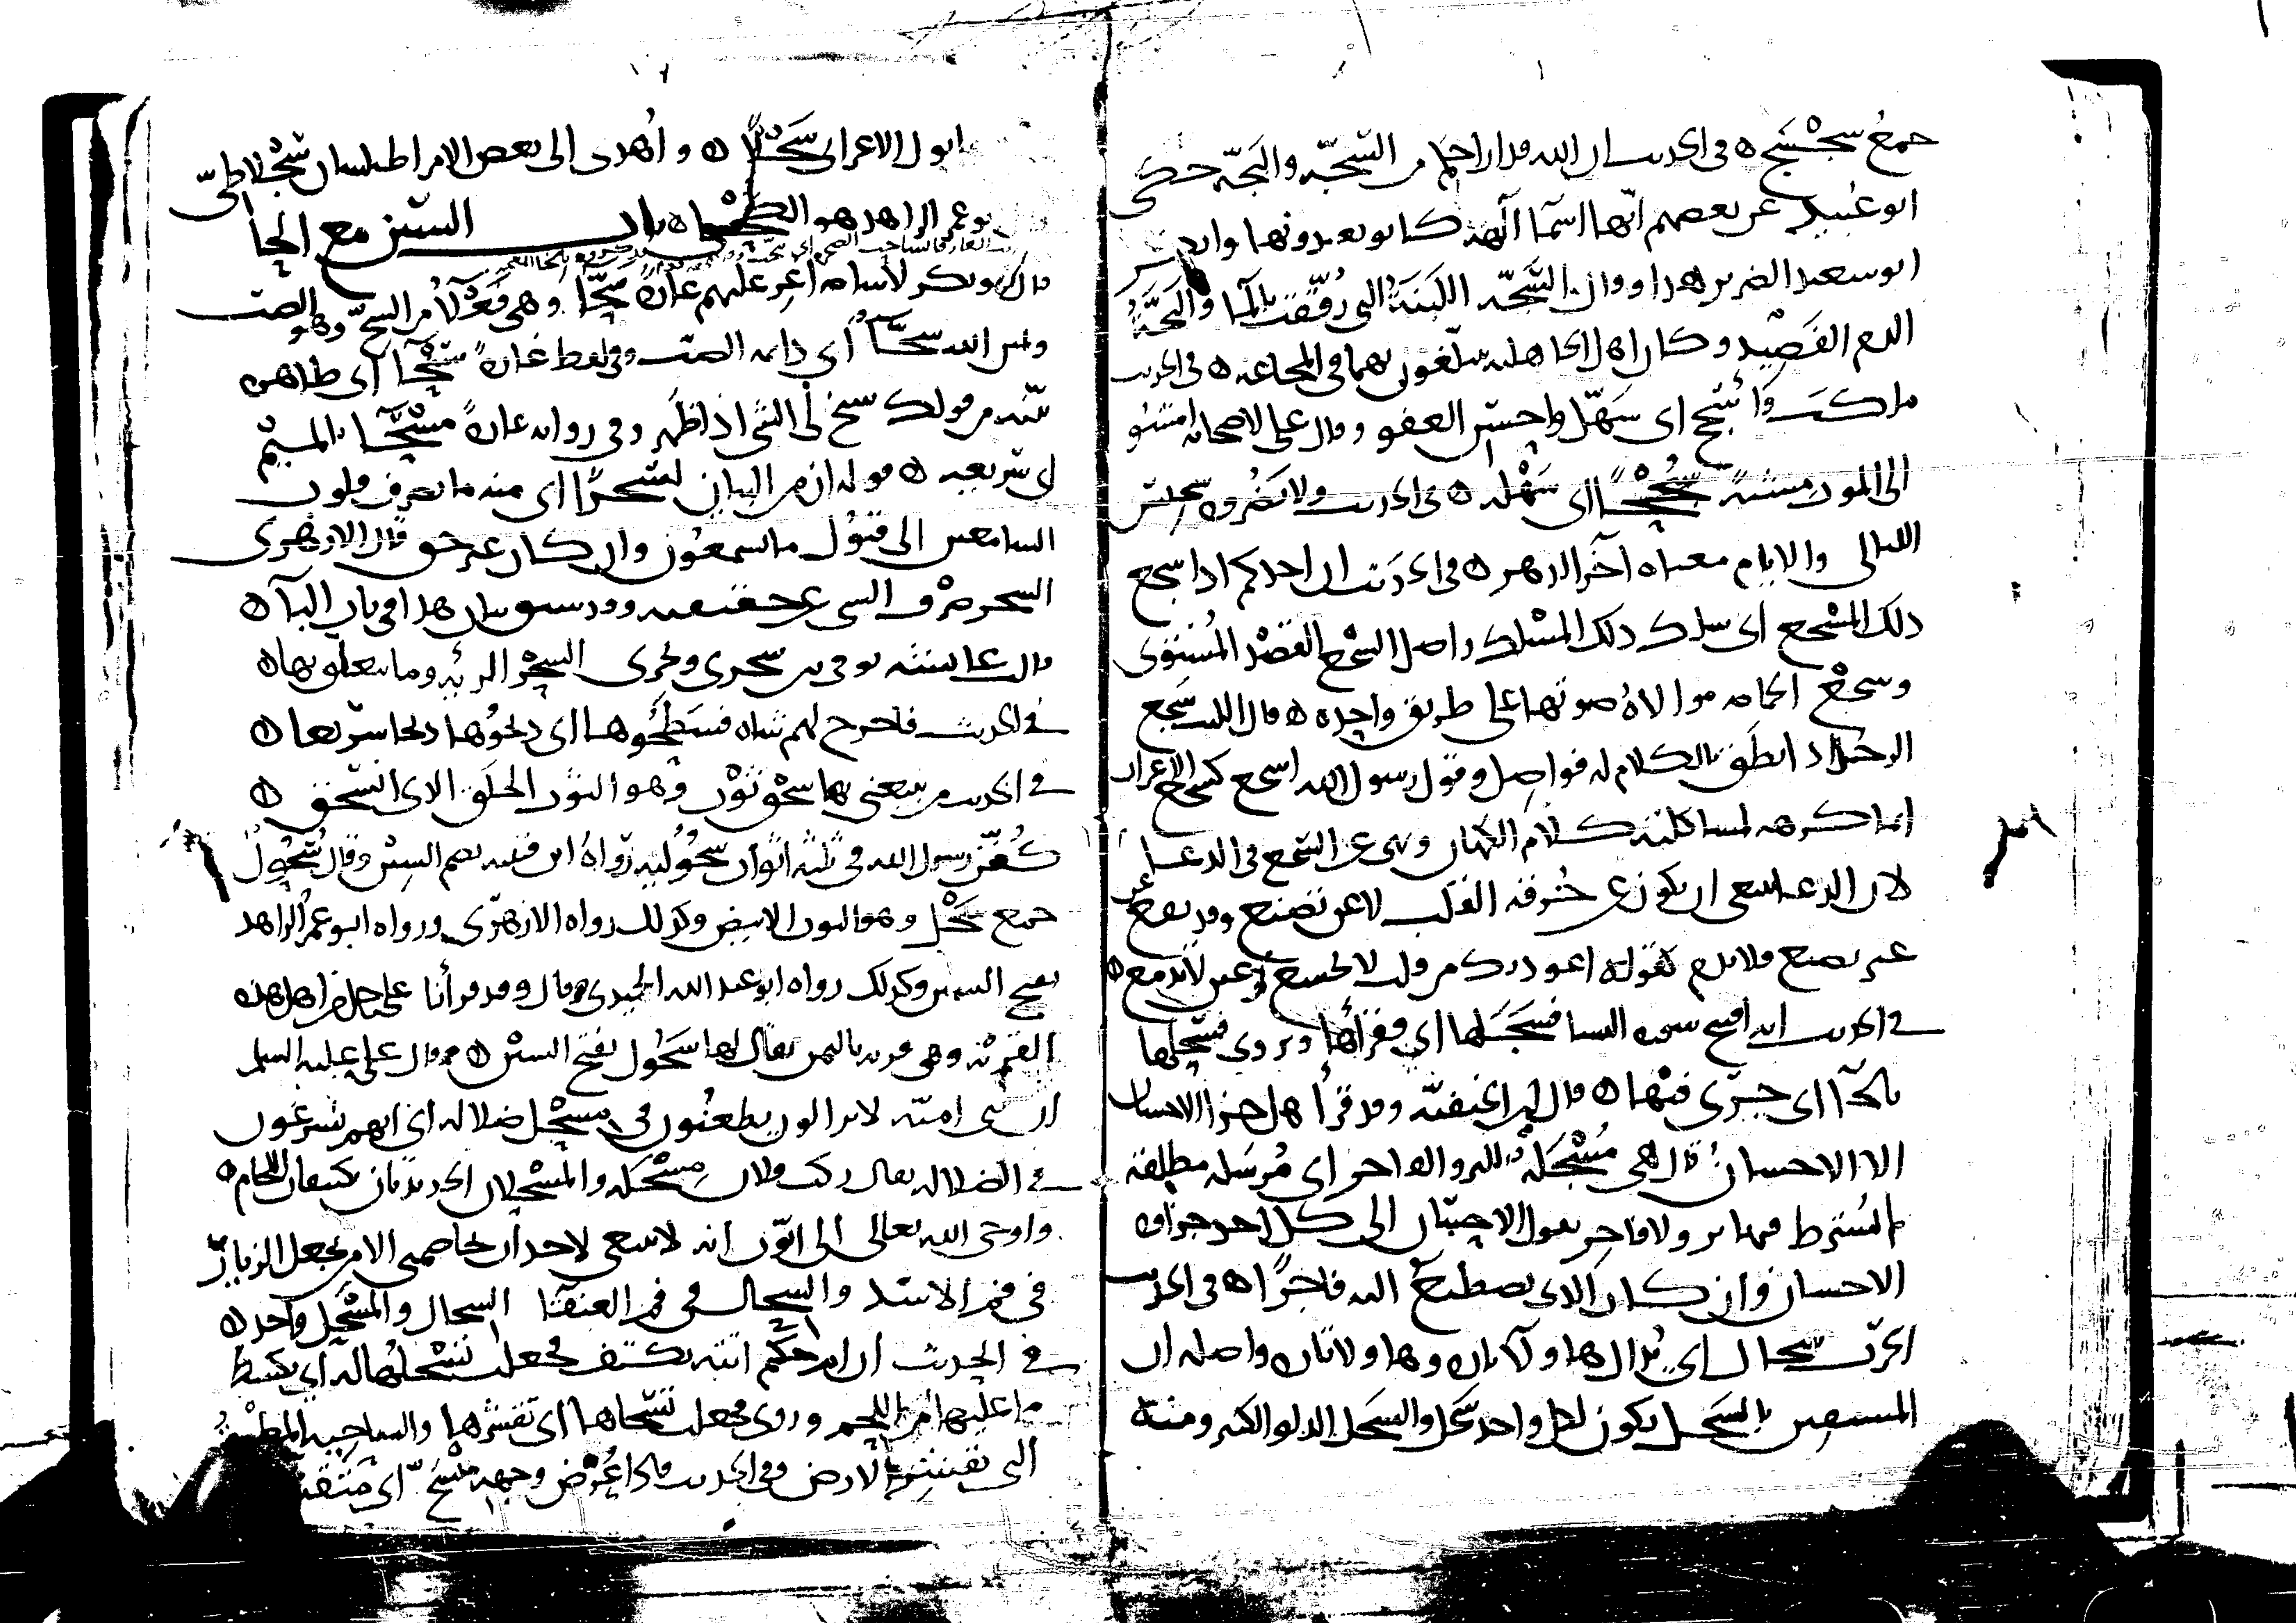 جمع سجسج ۞ في الحديث ان الله قد اراحكم من السجة والبجة حكى
ابو عبيد عن بعضهم انها اسما آلهة كانوا يعبدونها وانكر
ابو سعيد الضرير هذا وقال السجة اللبنة التي رققت بالما والبجة
الدم الفصيد وكان اهل الجاهلية يتبلغون بهما في المجاعة ۞ في الحديث
ملكت فاسجح اى سهل واحسن العفو وقال على لاصحابه امشوا
الى الموت مشية سجحا اى سهلة ۞ في الحديث ولا تضروه سجيس
الليالى والايام معناه آخر الدهر ۞ في الحديث ان احدكم اذا سجع
ذلك المسجع اى سلك ذلك المسلك واصل السجع القصد المستوى
وسجع الحمامة موالاة صوتها على طريق واحدة ۞ قال الليث سجع
الرجل اذا نطق بالكلام له فواصل وقول رسول الله اسجع كسجع الاعراب
انما كرهه لمشاكلته كلام الكهان ونهى عن السجع في الدعا
لان الدعا ينبغى ان يكون عن حرقة القلب لا عن تصنع وقد يقع عن
غير تصنع فلا يذم كقوله اعوذ بك من قلب لا يخشع وعين لا تدمع ۞
في الحديث انه افتتح سورة النسا فسجلها اى قرأها ويروى فسحلها
بالحا اى جرى فيها ۞ قال ابن الحنفية وقد قرأ هل جزا الاحسان
الا الاحسان قال هى مسجلة للبر والفاجر اى مرسلة مطلقة
لم يشترط فيها بر ولا فاجر يقول الاحسان الى كل احد جزاوه
الاحسان وان كان الذى يصطنع اليه فاجرا ۞ في الحديث
الحرب سجال اى يدال هاولا تارة وهاولا تارة واصله ان
المستقين بالسجل يكون لكل واحد سجل والسجل الدلو الكبير ومنه
ابول الاعرابى سجلا ۞ واهدى الى بعض الامرا طيلسان سجلاطى
ابو عمر الزاهد هو الكحلى ۞ باب السين مع الحا
قال ابو بكر لاسامة اغر عليهم غارة سحا وهى فعلا من السح وهو الصب
ويمين الله سحا اى دايمة الصب وفي لفظ غارة سنحا اى ظاهرة
بينة من قولك سنح لى الشى اذا ظهر وفي رواية غارة مسحا بالميم
اى سريعة ۞ قوله ان من البيان لسحرا اى منه ما يصرف قلوب
السامعين الى قبول ما يسمعون وان كان غير حق قال الازهرى
السحر صرف الشى عن حقيقته وقد سبق بيان هذا في باب البا ۞
قالت عايشة توفي بين سحرى ونحرى السحر الرئة وما يتعلق بها ۞
في الحديث فاخرج لهم شاة فسحطوها اى ذبحوها ذبحا سريعا ۞
في الحديث من يبيعنى بها سحق ثوب وهو الثوب الخلق الذى انسحق ۞
كفن رسول الله في ثلثة اثواب سحولية رواه ابن قتيبة بضم السين وقال سحول
جمع سحل وهو الثوب الابيض وكذلك رواه الازهرى ورواه ابو عمر الزاهد
بفتح السين وكذلك رواه ابو عبد الله الحميدى وقال وقد قرأنا على رجل من اهل هذه
القرية وهى قرية باليمن يقال لها سحول بفتح السين ۞ وقال على عليه السلم
ان بنى امية لا يزالون يطعنون في مسحل ضلالة اى انهم يسرعون
في الضلالة يقال ركب فلان مسحله والمسحلان الحديدتان تكتنفان اللجام ۞
واوحى الله تعالى الى ايوب انه لا ينبغى لاحد ان يخاصمنى الا من يجعل الزيار
في فم الاسد والسحال في فم العنقا السحال والمسحل واحد ۞
في الحديث ان ام حكيم اتته بكتف فجعلت تسحلها له اى تكشط
ما عليها من اللحم وروى فجعلت تسحاها اى تقشرها والساحية المطرة
التى تقشر الارض وفي الحديث فاذا عرض وجهه منسح اى منقشر